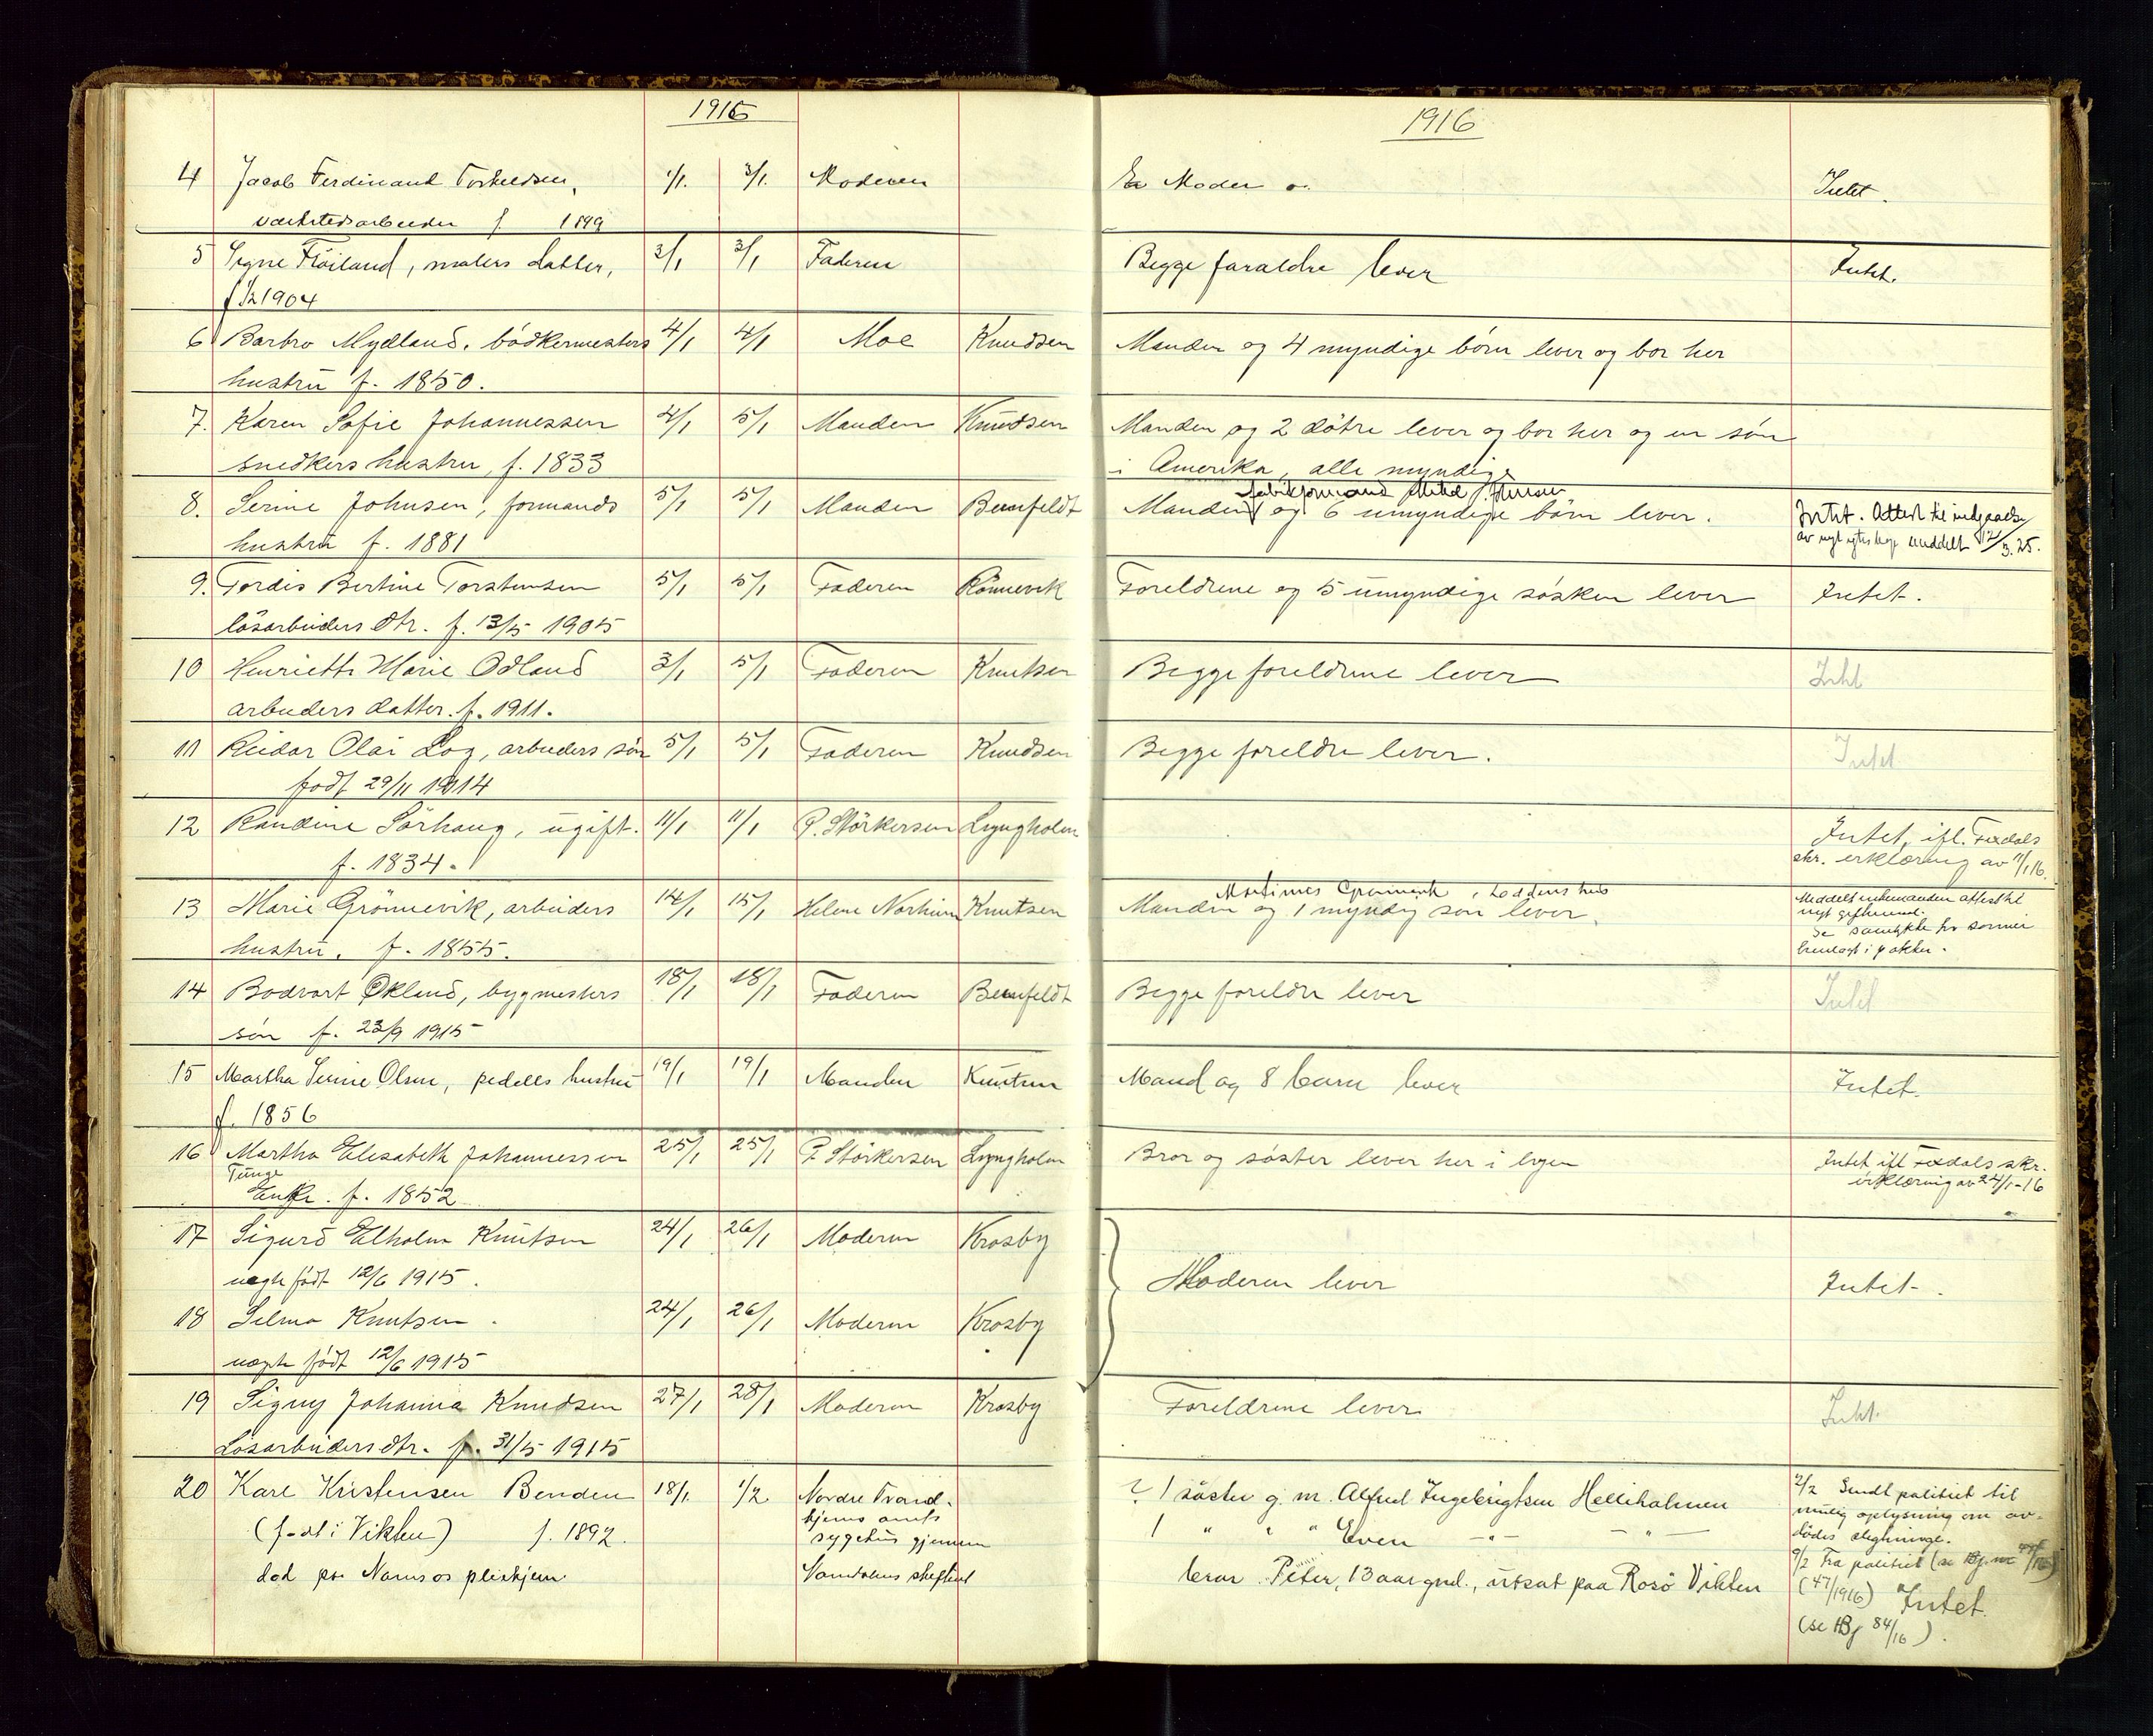 1916
1916
4 Jacob Ferdinand Torkildsen, 1/1. 3/1. Moderen En Moder Intet.
værkstedsarbeider f 1899
5 Signe Fröiland, malers datter, 3/1 3/1 Faderen Begge foraldre lever Intet.
1904
6 Barbro Mydland, bödkermesters 4/1 4/1 Moe Knudsen Manden og 4 myndige börn lever og bor her
hustru f. 1850.
7. Karen Sofie Johannessen 4/1 5/1 Manden Knudsen Manden og 2 dötre lever og bor her og en sön
snedkers hustru, f. 1833 i Amerika, alle myndige
8. Serine Johnsen, formands 5/1 5/1 Manden Bernfeldt Manden og 6 umyndige börn lever. Intet. Attest til indgaaelse
hustru f. 1881 av nyt egteskap meddelt 12/3.25.
9. Tordis Bertine Torstensen 5/1 5/1 Faderen Rönnevik Foreldrene og 5 umyndige søsken lever Intet.
lösarbeiders dtr. f. 13/5 1905
10 Henriette Marie Odland 3/1 5/1 Faderen Knutsen Begge foreldrene lever Intet
arbeiders datter. f. 1911.
11 Reidar Olai Log, arbeiders sön 5/1 5/1 Faderen Knudsen Begge foreldre lever. Intet
født 29/11 1914
12 Randine Sörhaug, ugift. 11/1 11/1 P. Störkersen Lyngholm Intet, ifl. Fixdals
f. 1834. skr. erklæring av 11/1 16.
13 Marie Grönnevik, arbeiders 14/1 15/1 Helene Norheim Knutsen Manden og 1 myndig søn lever. Meddelt enkemanden attest til
nyt giftermaal.
hustru. f. 1855. Se samtykke fra sønnen
henlagt i pakken.
14 Bodvart Økland, bygmesters 18/1 18/1 Faderen Bernfeldt Begge foreldre lever Intet
sön f. 23/9 1915
15 Martha Serine Olsen, pedells hustru 19/1 19/1 Manden Knutsen Mand og 8 barn lever Intet.
f. 1856
16 Martha Elisabeth Johannessen 25/1 25/1 P. Störkersen Lyngholm Bror og søster lever her i byen Intet ifl Fixdals skr.
Tunge erklæring av 24/1-16
Enke. f. 1852
17 Sigurd Elholm Knutsen 24/1 26/1 Moderen Krosby Moderen lever Intet.
uegte født 12/6 1915.
18 Selma Knutsen 24/1 26/1 Moderen Krosby
uegte født 12/6 1915
19 Signy Johanna Knudsen 27/1 28/1 Moderen Krosby Foreldrene lever Intet.
Lösarbeiders dtr. f. 31/5 1915
20 Karl Kristensen Benden 18/1. 1/2 Nordre Trond- ? 1 söster g. m. Alfred Ingebrigtsen Helliholmen 2/2 Sendt politiet til
hjems amts mulig oplysning om av-
(født i Vikten) f. 1892. sygehus gjennem 1 " " " Even - " - - " - dødes slegtninge.
død paa Namsos pleiehjem. Namdalens skifteret bror Peter, 13 aar gml., utsat paa Rosö Vikten 9/2 Fra politiet
(47/1916) Intet.
(se HBj 84/16).